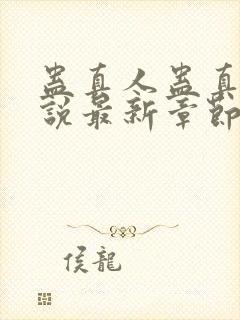 蛊真人蛊真
說最新章節
侯龍